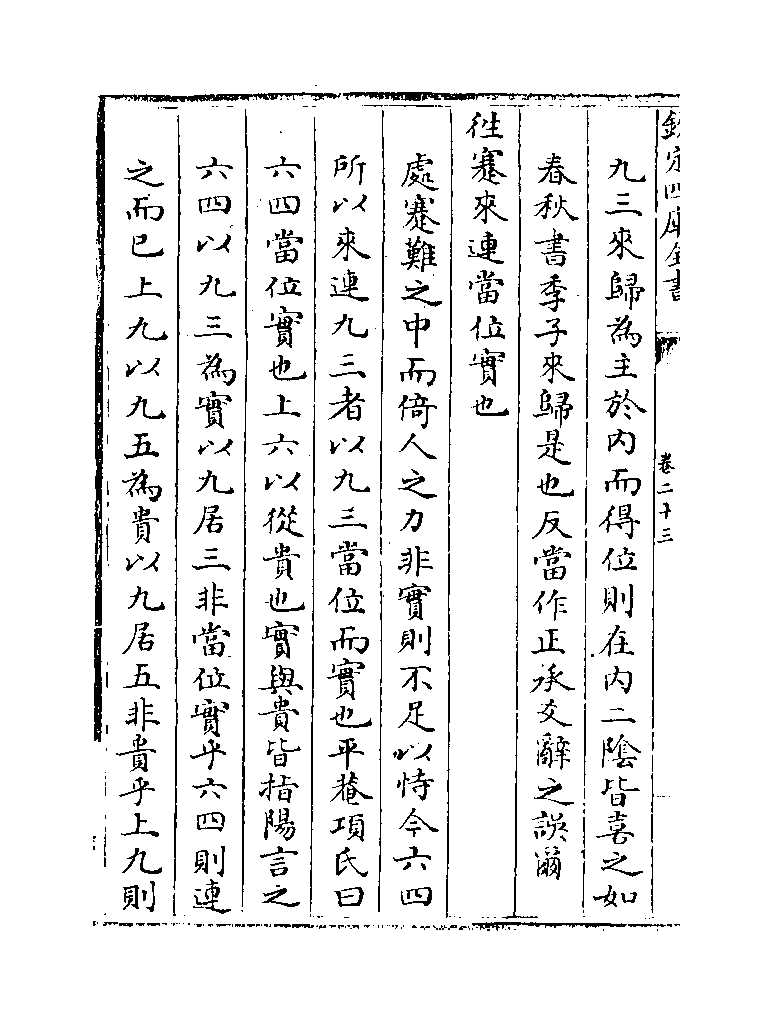 欽定四庫全書
卷二十三
九三來歸為主於内而得位則在内二陰皆喜之如
春秋書季子來歸是也反當作正承爻辭之誤爾
徃蹇來連當位實也
處蹇難之中而倚人之力非實則不足以恃今六四
所以來連九三者以九三當位而實也平菴項氏曰
六四當位實也上六以從貴也實與貴皆指陽言之
六四以九三為實以九居三非當位實乎六四則連
之而已上九以九五為貴以九居五非貴乎上九則